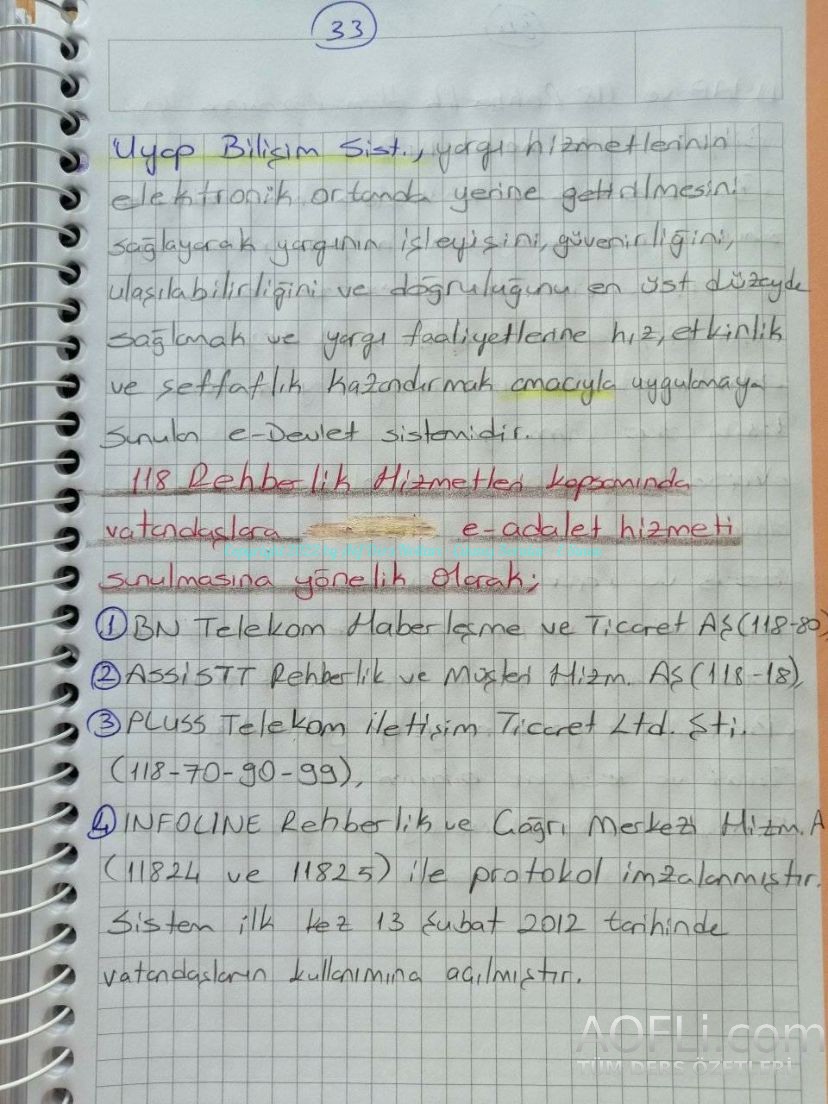 33
Uyap Bilişim Sist., yargı hizmetlerinin
elektronik ortamda yerine getirilmesini
sağlayarak yargının işleyişini, güvenirliğini,
ulaşılabilirliğini ve doğruluğunu en üst düzeyde
sağlamak ve yargı faaliyetlerine hız, etkinlik
ve şeffaflık kazandırmak amacıyla uygulamaya
sunulan e-Devlet sistemidir.
118 Rehberlik Hizmetleri kapsamında
vatandaşlara e-adalet hizmeti
sunulmasına yönelik olarak;
① BN Telekom Haberleşme ve Ticaret AŞ (118-80)
② ASSİSTT Rehberlik ve Müşteri Hizm. AŞ (118-18),
③ PLUSS Telekom iletişim Ticaret Ltd. Şti.
(118-70-90-99),
④ INFOLINE Rehberlik ve Çağrı Merkezi Hizm. A
(11824 ve 11825) ile protokol imzalanmıştır.
Sistem ilk kez 13 Şubat 2012 tarihinde
vatandaşların kullanımına açılmıştır.
AOFLi.com
TÜM DERS ÖZETLERİ